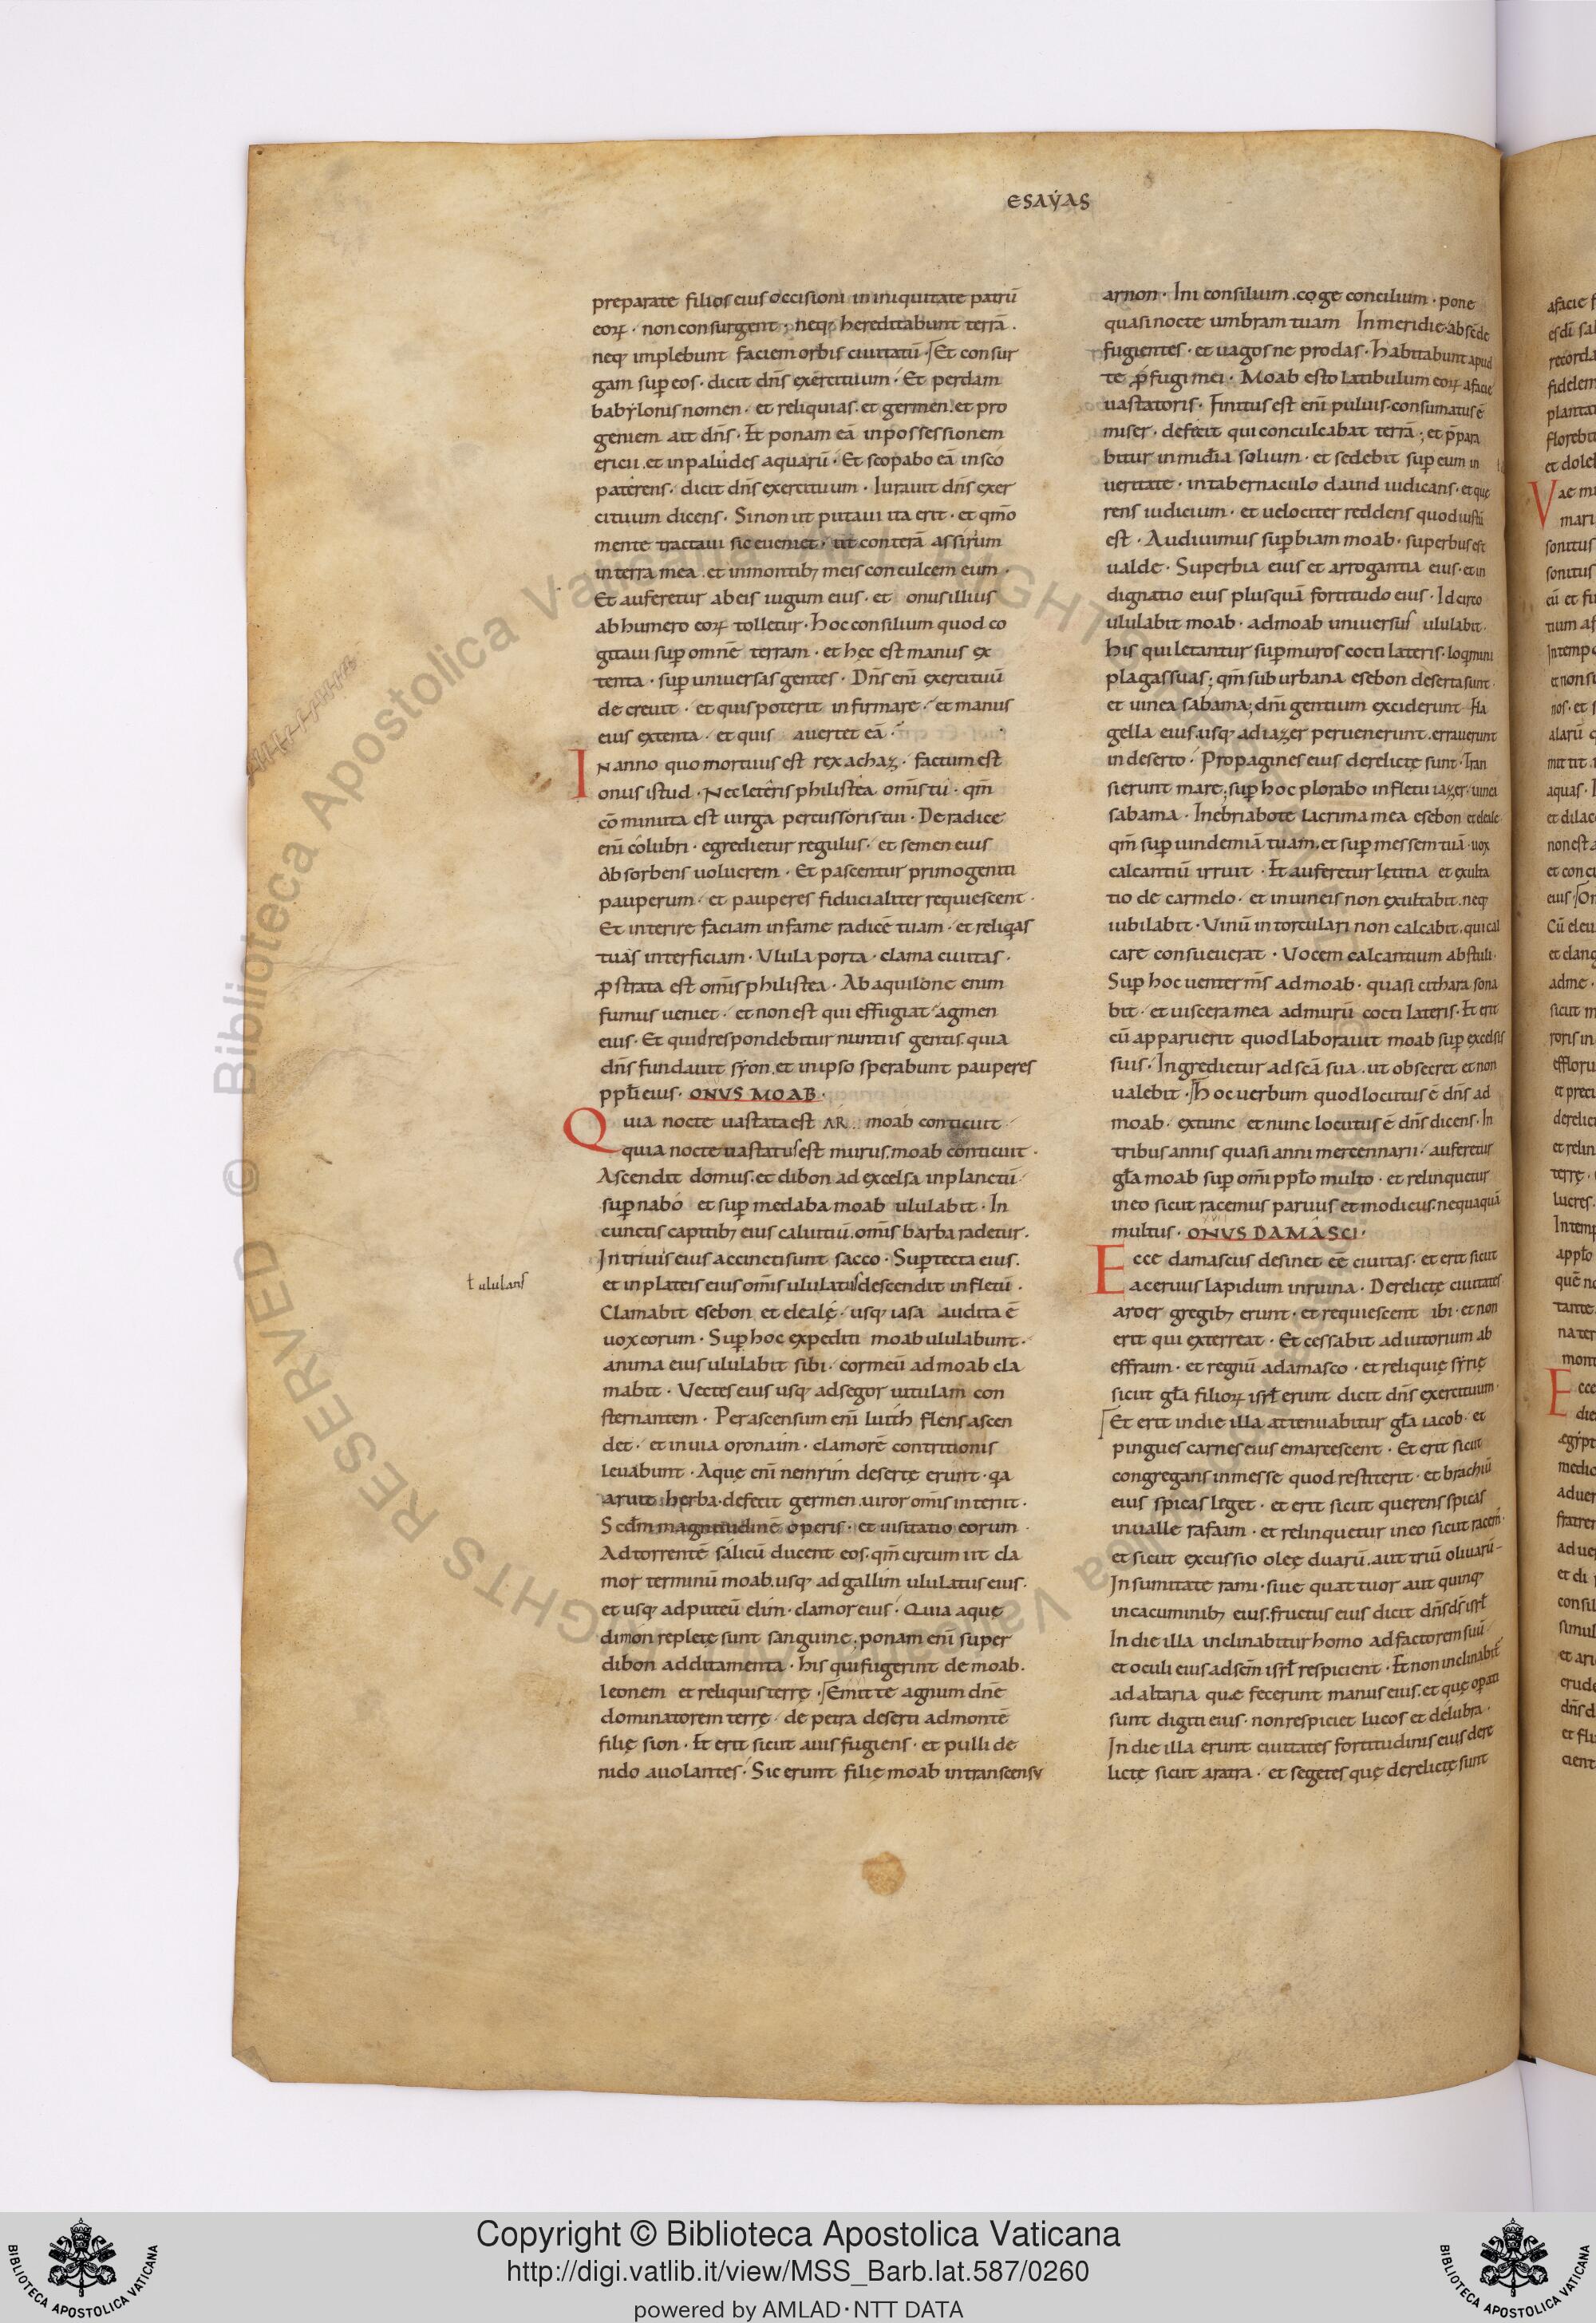 ESAẎAS
preparate filios eius occisioni in iniquitate patrū
eoꝝ · non consurgent · neqꝫ hereditabunt terrā ·
neqꝫ implebunt faciem orbis ciuitatū · Et consur
gam suꝑ eos · dicit dn̄s exercituum · Et perdam
babylonis nomen · et reliquias · et germen · et pro
geniem ait dn̄s · Et ponam eā in possessionem
ericii · et in paludes aquarū · Et scopabo eā in sco
pa terens · dicit dn̄s exercituum · Iurauit dn̄s exer
cituum dicens · Si non ut putaui ita erit · et qm̄o
mente tractaui sic eueniet · ut conterā assirum
in terra mea · et in montibꝫ meis conculcem eum ·
Et auferetur ab eis iugum eius · et onus illius
ab humero eoꝝ tolletur · Hoc consilium quod co
gitaui suꝑ omnē terram · et hęc est manus ex
tenta · suꝑ uniuersas gentes · Dn̄s eni̅ exercituū
decreuit · et quis poterit infirmare · et manus
eius extenta · et quis auertet eā ·
IN anno quo mortuus est rex achaz · factum est
onus istud · Nec leteris philistea om̄is tu · qm̄
cōminuta est uirga percussoris tui · De radice
eni̅ colubri · egredietur regulus · et semen eius
absorbens uolucrem · Et pascentur primogeniti
pauperum · et pauperes fiducialiter requiescent ·
Et interire faciam in fame radicē tuam · et reliqias
tuas interficiam · Ulula porta · clama ciuitas ·
ꝓstrata est om̄is philistea · Ab aquilone enim
fumus ueniet · et non est qui effugiat agmen
eius · Et quid respondebitur nuntiis gentis · quia
dn̄s fundauit syon · et in ipso sperabunt pauperes
ppl̄i eius · ONUS MOAB ·
Quia nocte uastata est AR moab conticuit ·
quia nocte uastatus est murus · moab conticuit ·
Ascendit domus · et dibon ad excelsa in planctū
suꝑ nabo et suꝑ medaba moab ululabit · In
cunctis capitibꝫ eius caluitiū · om̄is barba radetur ·
In triuiis eius accincti sunt sacco · Suꝑ tecta eius ·
et in plateis eius om̄is ululatus descendit in fletū ·
ƚ ululans
Clamabit esebon et elealę · usqꝫ iasa audita ē
uox eorum · Suꝑ hoc expediti moab ululabunt ·
anima eius ululabit sibi · cor meū ad moab cla
mabit · Uectes eius usqꝫ ad segor uitulam con
sternantem · Per ascensum eni̅ luith flens ascen
det · et in uia oronaim · clamorē contritionis
leuabunt · Aquę eni̅ nemrim desertę erunt · qa
aruit herba · defecit germen · uiror om̄is interiit ·
Scdm̄ magnitudinē operis · et uisitatio eorum
Ad torrentē salicū ducent eos · qm̄ circumiit cla
mor terminū moab · usqꝫ ad gallim ululatus eius ·
et usqꝫ ad puteū elim · clamor eius · Quia aque
dimon repletę sunt sanguine · ponam eni̅ super
dibon additamenta · his qui fugerint de moab ·
leonem et reliquis terrę · Emitte agnum dn̄e
dominatorem terrę · de petra deserti ad montē
filię sion · Et erit sicut auis fugiens · et pulli de
nido auolantes · Sic erunt filię moab in transcensu
arnon · Ini consilium · coge concilium · pone
quasi nocte umbram tuam In meridie · absc̄de
fugientes · et uagos ne prodas · Habitabunt apud
te ꝓfugi mei · Moab esto latibulum eoꝝ a facie
uastatoris · Finitus est eni̅ puluis · consumatus ē
miser · defecit qui conculcabat terrā · et p̄para
bitur in mīdia solium · et sedebit suꝑ eum in
ueritate · in tabernaculo dauid iudicans · et quę
rens iudicium · et uelociter reddens quod iustū
est · Audiuimus suꝑbiam moab · superbus est
ualde · Superbia eius et arrogantia eius · et in
dignatio eius plusquā fortitudo eius · Idcirco
ululabit moab · ad moab uniuersus ululabit ·
his qui letantur suꝑ muros cocti lateris · loqimini
plagas suas · qm̄ suburbana esebon deserta sunt ·
et uinea sabama · dn̄i gentium exciderunt fla
gella eius · usqꝫ ad iazer peruenerunt · errauerunt
in deserto · Propagines eius derelictę sunt · Tran
sierunt mare · suꝑ hoc plorabo in fletu iazer · uinea
sabama · Inebriabo te lacrima mea esebon et eleale
qm̄ suꝑ uindemiā tuam · et suꝑ messem tuā · uox
calcantiū irruit · Et auferetur lętitia et exulta
tio de carmelo · et in uineis non exultabit · neqꝫ
iubilabit · Uinū in torculari non calcabit · qui cal
care consueuerat · Uocem calcantium abstuli ·
Suꝑ hoc uenter m̄s ad moab · quasi cithara sona
bit · et uiscera mea ad murū cocti lateris · Et erit
cū apparuerit quod laborauit moab suꝑ excelsis
suis · Ingredietur ad sc̄a sua · ut obsecret et non
ualebit · Hoc uerbum quod locutus ē dn̄s ad
moab · extunc et nunc locutus ē dn̄s dicens · In
tribus annis quasi anni mercennarii · auferetur
gl̄a moab suꝑ om̄i ppl̄o multo · et relinquetur
in eo sicut racemus paruus et modicus · nequaquā
multus · ONUS DAMASCI ·
Ecce damascus desinet eē ciuitas · et erit sicut
aceruus lapidum in ruina · Derelictę ciuitates
aroer gregibꝫ erunt · et requiescent ibi · et non
erit qui exterreat · Et cessabit adiutorium ab
effraim · et regnū a damasco · et reliquię syrię
sicut gl̄a filioꝝ isrl̄ erunt dicit dn̄s exercituum ·
Et erit in die illa attenuabitur gl̄a iacob · et
pingues carnes eius emarcescent · Et erit sicut
congregans in messe quod restiterit · et brachiū
eius spicas leget · et erit sicut querens spicas
in ualle rafaim · et relinquetur in eo sicut racem̄
et sicut excussio oleę duarū · aut triū oliuarū
In sumitate rami · siue quattuor aut quinqꝫ
in cacuminibꝫ eius · fructus eius dicit dn̄s ds̄ isrl̄
In die illa inclinabitur homo ad factorem suū
et oculi eius ad scm̄ isrl̄ respicient · Et non inclinabit̄
ad altaria quę fecerunt manus eius · et quę oꝑati
sunt digiti eius · non respiciet lucos et delubra ·
In die illa erunt ciuitates fortitudinis eius dere
lictę sicut aratra · et segetes quę derelictę sunt
Copyright © Biblioteca Apostolica Vaticana
http://digi.vatlib.it/view/MSS_Barb.lat.587/0260
powered by AMLAD·NTT DATA